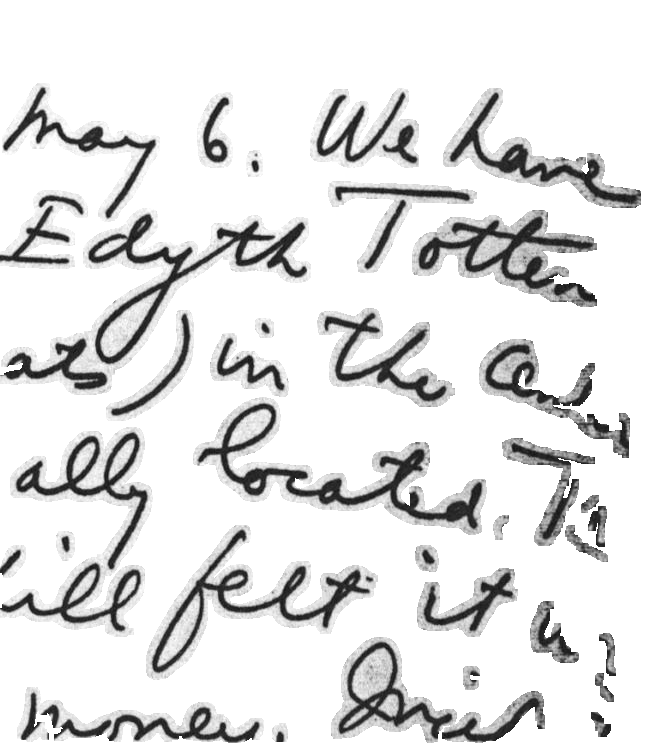 May 6. We have
Edyth Totten
ats) in the
ally located.
ill felt it
money.